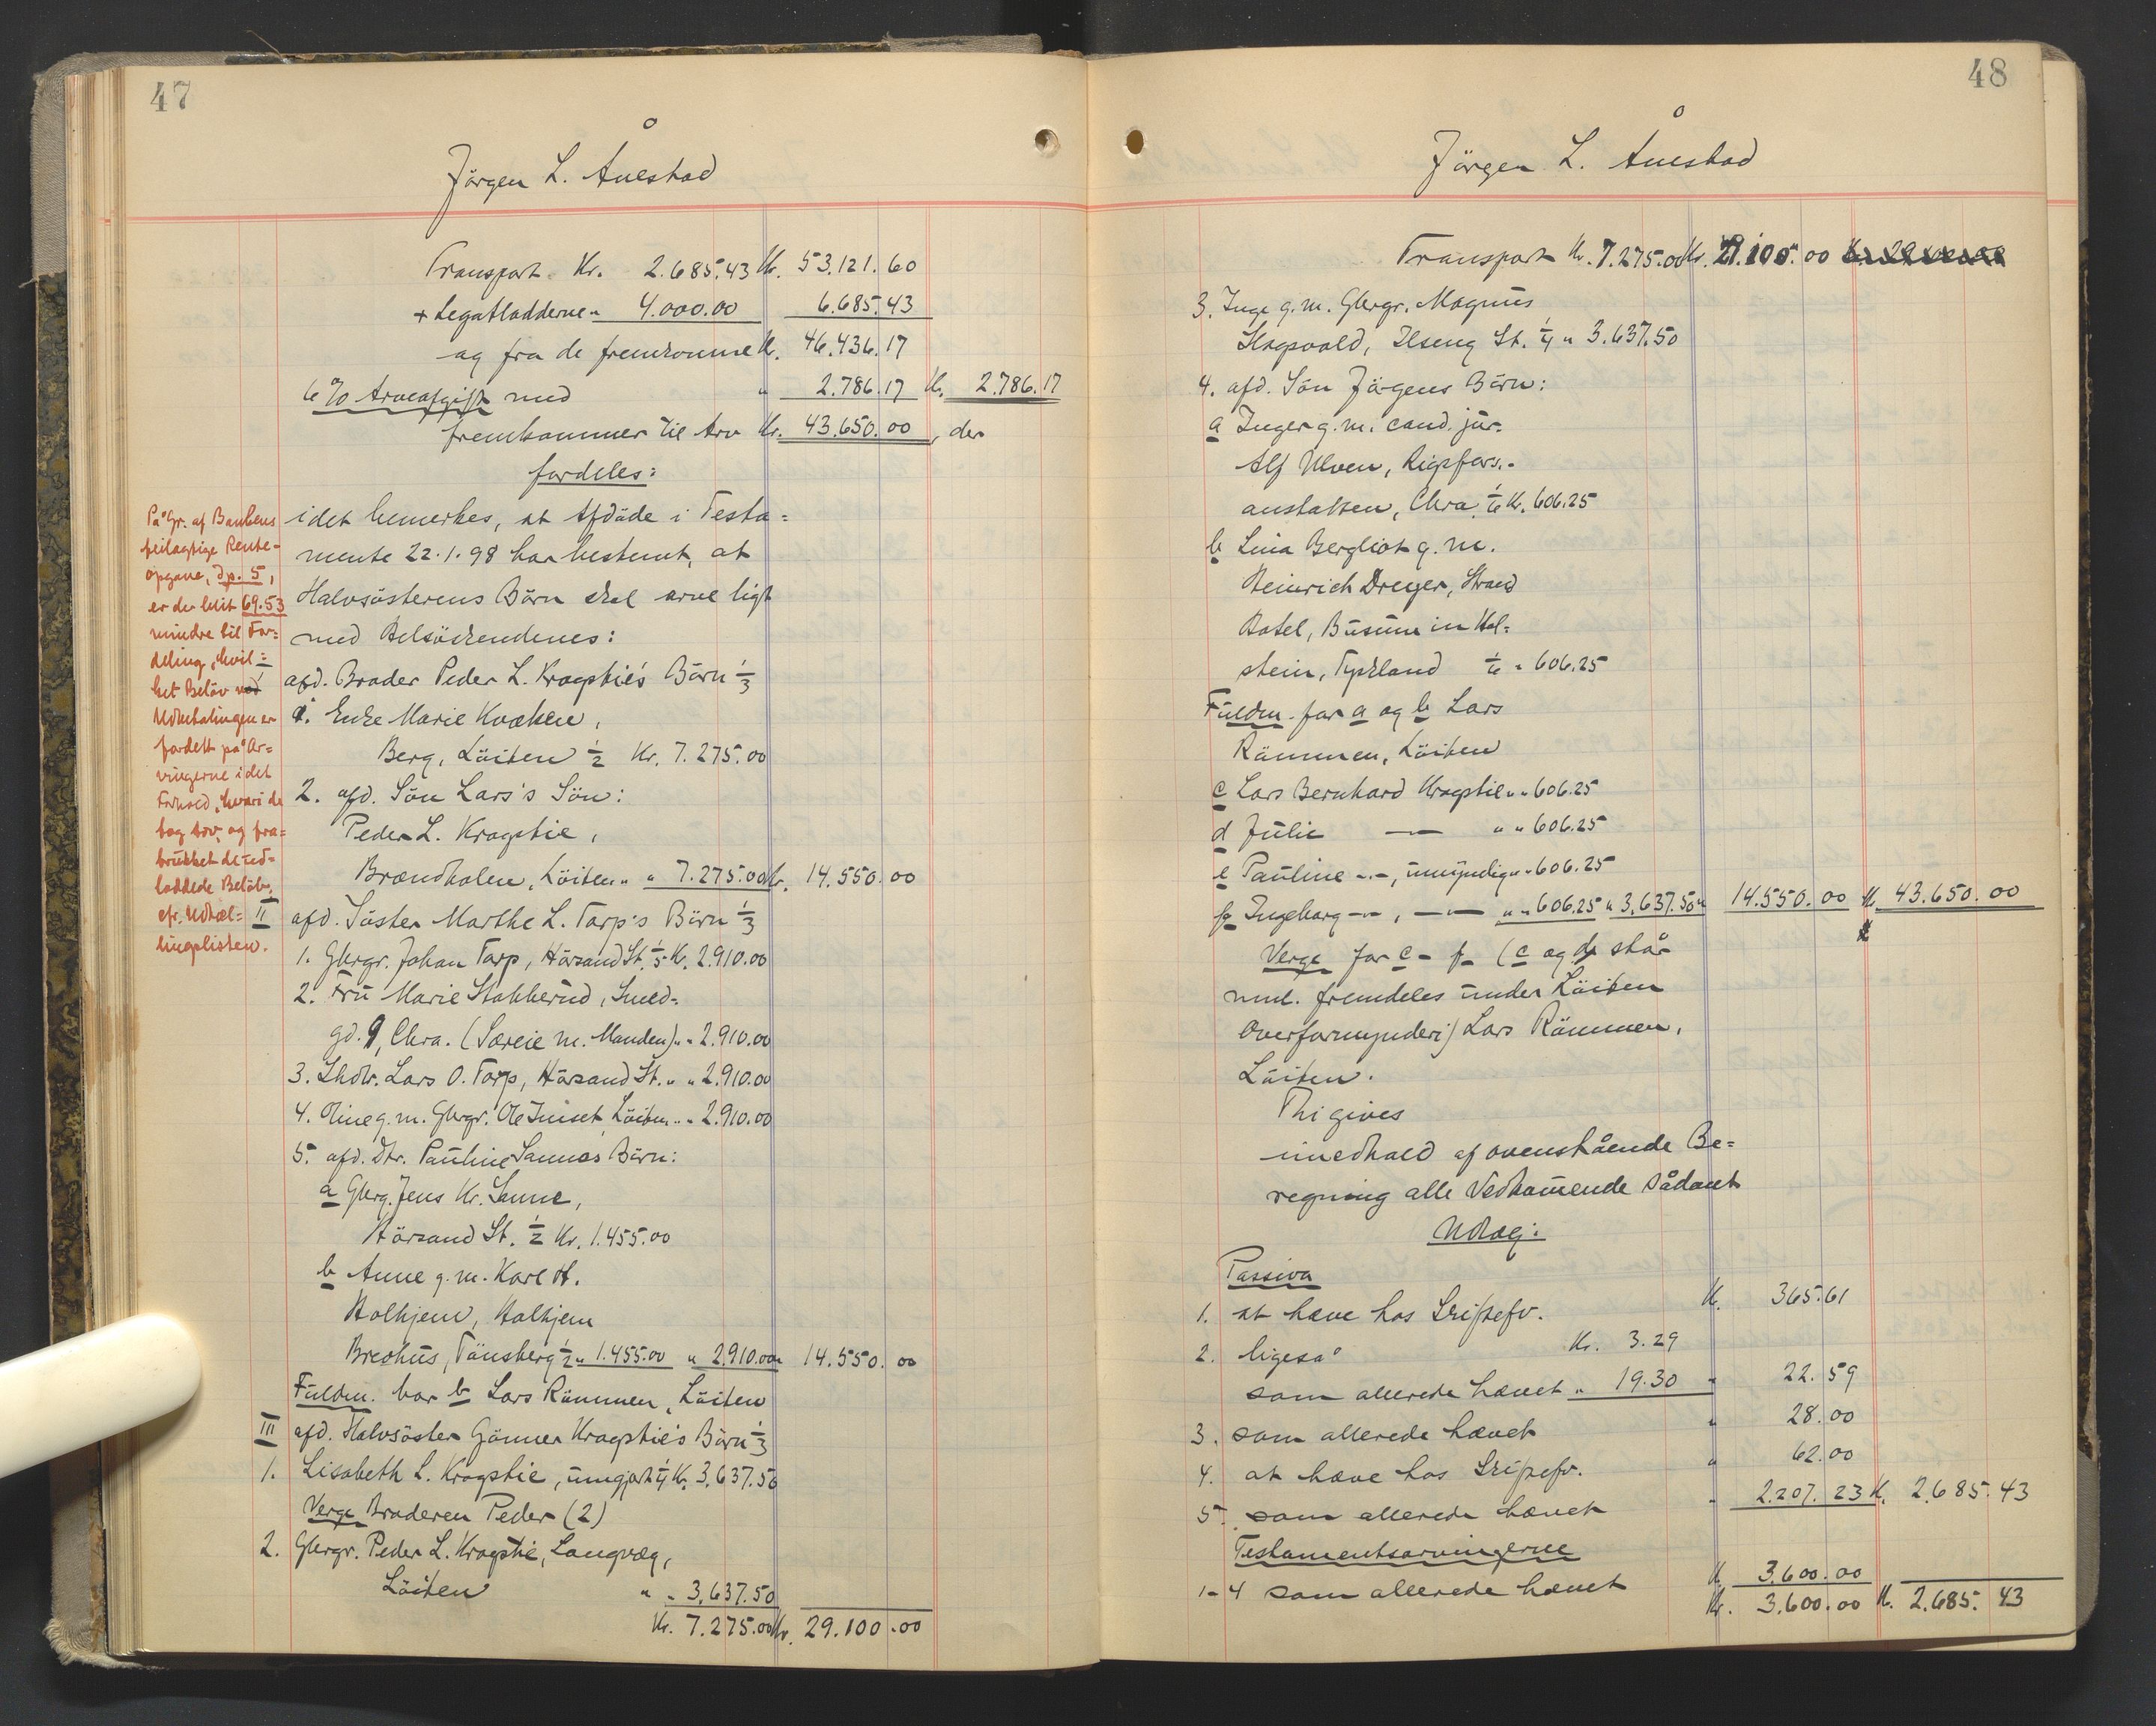 47
Jörgen L. Åuestad
Transport Kr. 2.685.43 Kr. 53.121.60
+ Legatladderne " 4.000.00 6.685.43
ag fra de fremkomne Kr. 46.436.17
6 % Arveafgift med " 2.786.17 Kr. 2.786.17
fremkommer til Arv Kr. 43.650.00, der
fordeles:
idet bemerkes, at Afdöde i Testa=
mente 22.1.98 har bestemt, at
Halvsösterens Börn skal arve ligt
med Helsöskendenes:
afd. Broder Peder L. Kragstie's Börn 1/3
1. Enke Marie Kvæken,
Berg, Löiten 1/2 Kr. 7.275.00
2. afd. Sön Lars's Sön:
Peder L. Kragstie,
Brændholen, Löiten " " 7.275.00 Kr. 14.550.00
II afd. Söster Marthe L. Tarp's Börn 1/3
1. Gbrgr. Johan Tarp, Hörsand St. 1/5 Kr. 2.910.00
2. Fru Marie Stakkerud, Smed=
gd. 9, Chra. (Særeie m. Manden) " " 2.910.00
3. Lhdlr. Lars O. Tarp, Hörsand St. " " 2.910.00
4. Oline g. m. Gbrgr. Ole Imset, Löiten " " 2.910.00
5. afd. Dtr. Pauline Sannes Börn:
a Gbrg. Jens Kr. Sanne,
Hörsand St. 1/2 Kr. 1.455.00
b Anne g. m. Karl H.
Holkjem, Holkjem
Brevhus, Tönsberg 1/2 " 1.455.00 " 2.910.00 " 14.550.00
Fuldm. har b Lars Römmen, Löiten
III afd. Halvsöster Gönner Kragstie's Börn 1/3
1. Lisabeth L. Kragstie, umgjort 1/4 Kr. 3.637.50
Verge Broderen Peder (2)
2. Gbrgr. Peder L. Kragstie, Langvæg,
Löiten " " 3.637.50
Kr. 7.275.00 Kr. 29.100.00
På Gr. af Bankens
feilagtige Rente-
opgave, dp. 5,
er der blit 69.53
mindre til For=
deling, hvil=
ket Belöb ved
Udbetalingen er
fordelt på Ar=
vingerne i det
Forhold, hvori de
tog Arv, og fra=
trukket de ud=
laddede Belöb,
cfr. Udbetal=
lingslisten.
48
Jörgen L. Åuestad
Transport Kr. 7.275.00 Kr. 29.100.00
3. Inge g. m. Gbrgr. Magnus
Skogsvold, Ilseng St. 1/4 " 3.637.50
4. afd. Sön Jörgens Börn:
a Inger g. m. cand. jur.
Alf Ulven, Rigsfors.-
anstalten, Chra. 1/6 Kr. 606.25
b Lina Bergliot g. m.
Heinrich Dreyer, Strand
Hotel, Büsum in Hol=
stein, Tyskland 1/6 " 606.25
Fuldm. for a og b Lars
Römmen, Löiten
c Lars Bernhard Kragstie " " 606.25
d Julie — " " 606.25
e Pauline -"-, umyndig " " 606.25
f Ingeborg -"-, —"— " " 606.25 " 3.637.50 " 14.550.00 Kr. 43.650.00
Verge for c - f (c og d står
nml. fremdeles under Löiten
Overformynderi) Lars Römmen,
Löiten.
Thi gives
i medhold af ovenstående Be=
regning alle Vedkommende sådant
Udlæg:
Passiva
1. at hæve hos Skiftefv. Kr. 365.61
2. ligeså Kr. 3.29
som allerede hævet " 19.30 " 22.59
3. som allerede hævet " 28.00
4. at hæve hos Skiftefv. " 62.00
5. som allerede hævet " 2.207.23 Kr. 2.685.43
Testamentsarvingerne
1-4 som allerede hævet Kr. 3.600.00
Kr. 3.600.00 Kr. 2.685.43